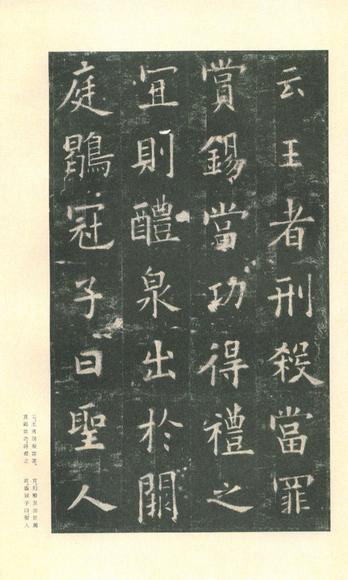 云王者刑殺當罪
賞錫當功得禮之
宜則醴泉出於闕
庭鶡冠子曰聖人
云王者刑殺當罪、 宜則醴泉出於闕
賞錫當功得禮之 庭鶡冠子曰聖人